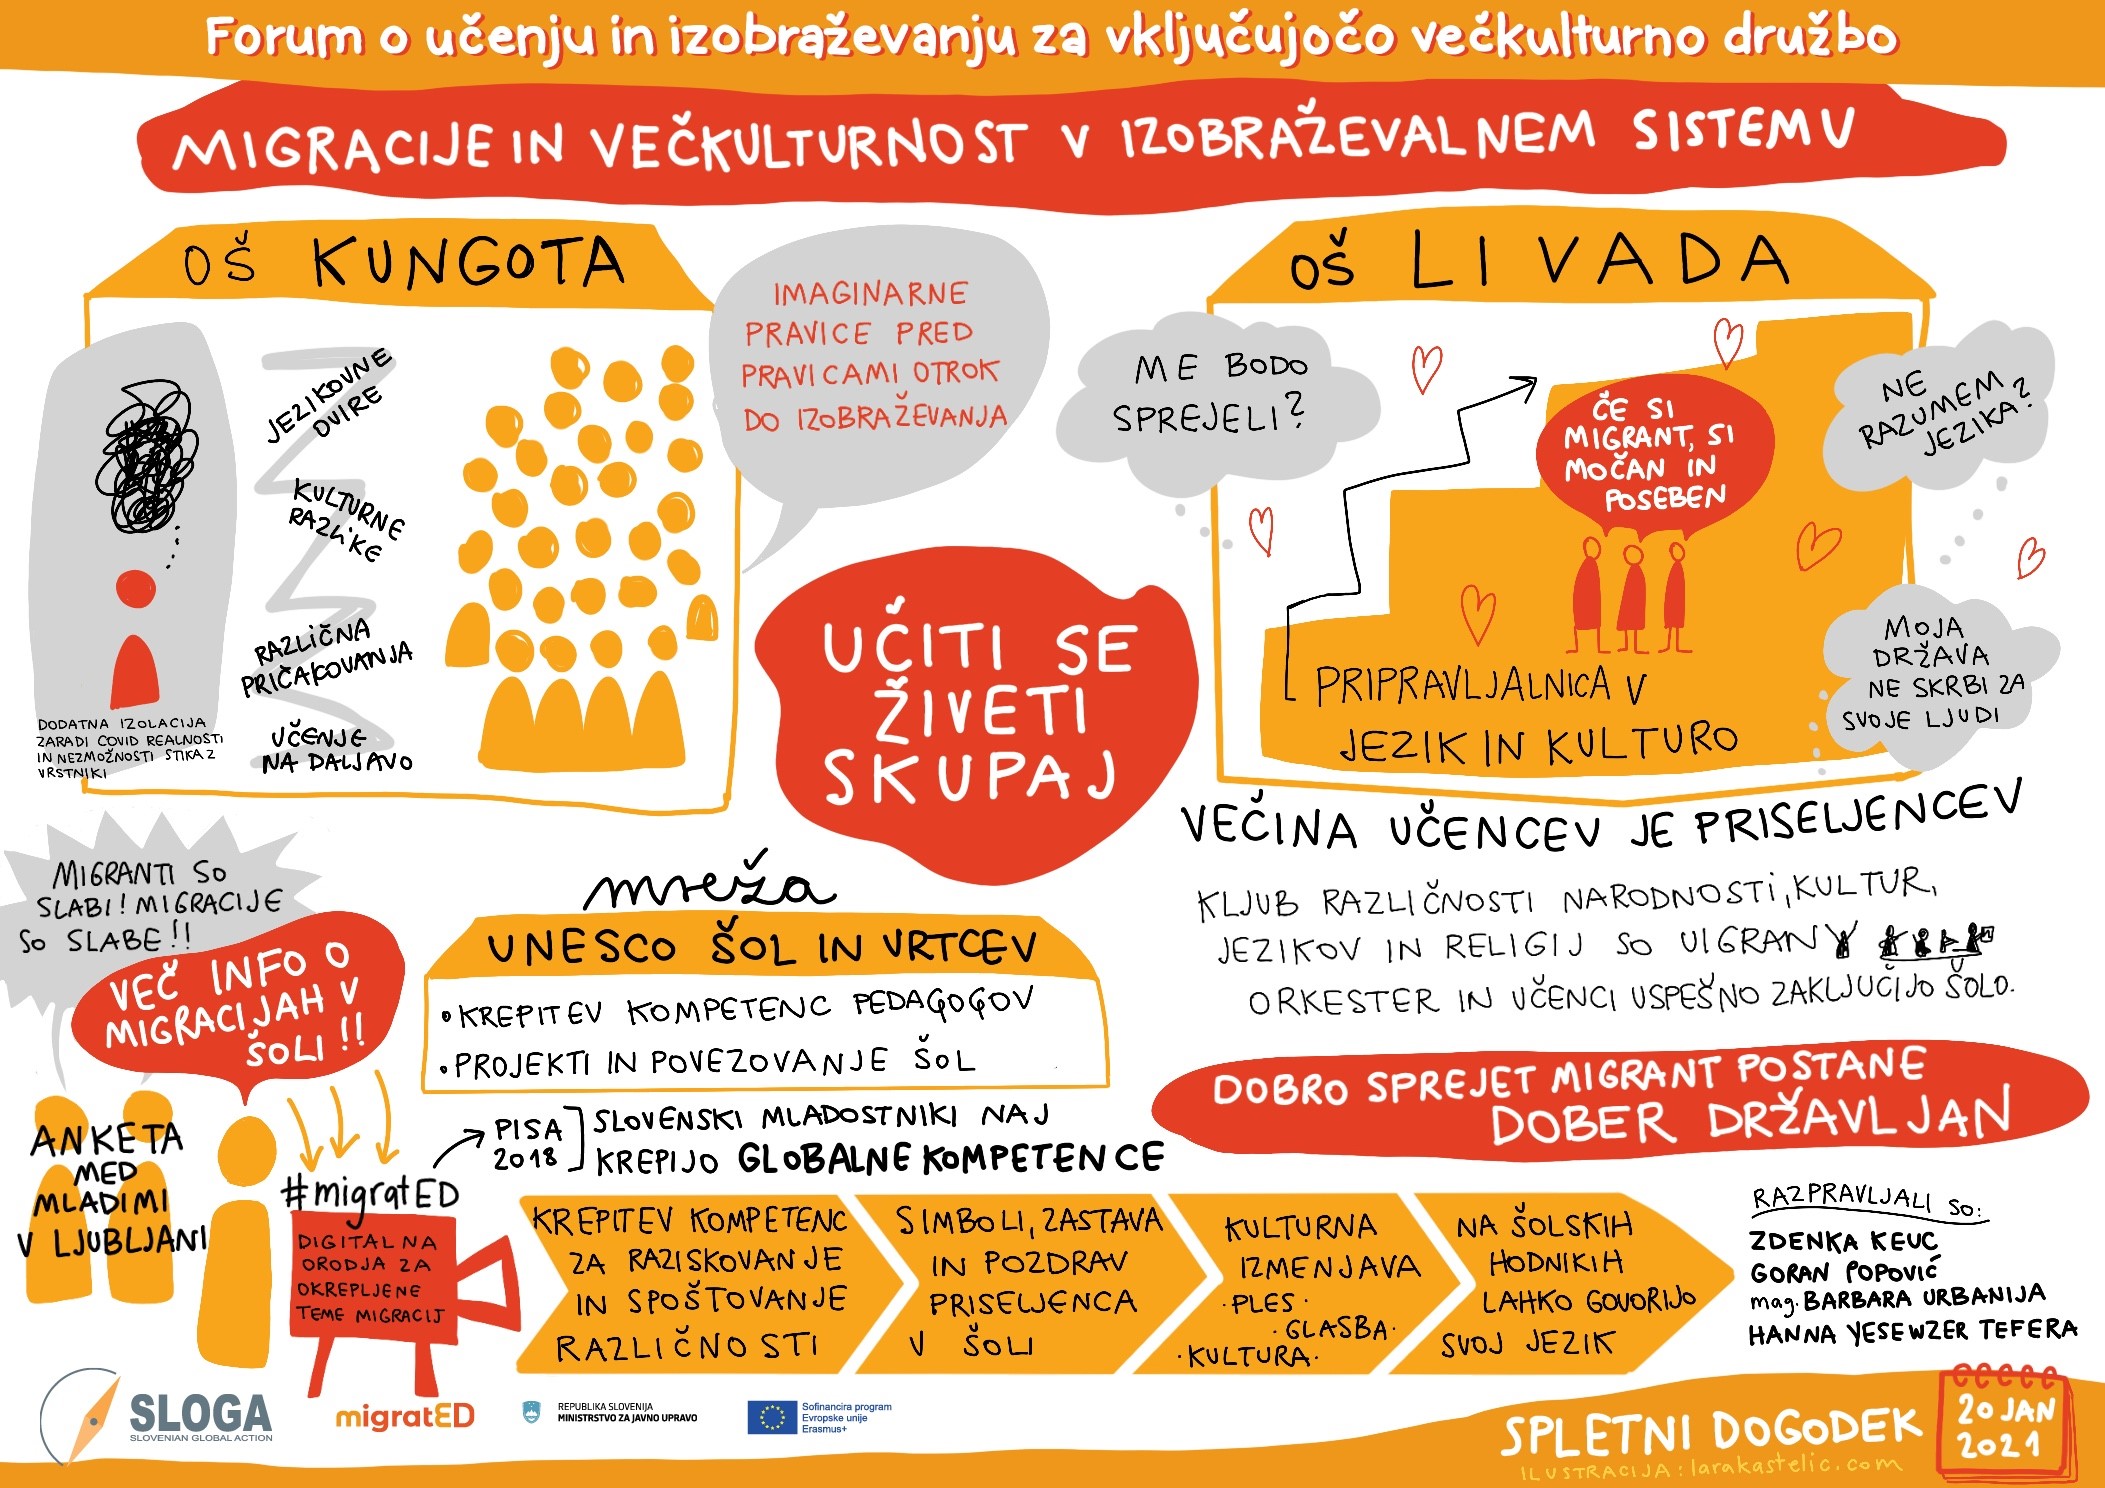 Forum o učenju in izobraževanju za vključujočo večkulturno družbo
MIGRACIJE IN VEČKULTURNOST V IZOBRAŽEVALNEM SISTEMU
OŠ KUNGOTA
JEZIKOVNE
OVIRE
KULTURNE
RAZLIKE
RAZLIČNA
PRIČAKOVANJA
UČENJE
NA DALJAVO
DODATNA IZOLACIJA
ZARADI COVID REALNOSTI
IN NEZMOŽNOSTI STIKA Z
VRSTNIKI
IMAGINARNE
PRAVICE PRED
PRAVICAMI OTROK
DO IZOBRAŽEVANJA
UČITI SE
ŽIVETI
SKUPAJ
OŠ LIVADA
ME BODO
SPREJELI?
ČE SI
MIGRANT, SI
MOČAN IN
POSEBEN
NE
RAZUMEM
JEZIKA?
MOJA
DRŽAVA
NE SKRBI ZA
SVOJE LJUDI
PRIPRAVLJALNICA V
JEZIK IN KULTURO
VEČINA UČENCEV JE PRISELJENCEV
KLJUB RAZLIČNOSTI NARODNOSTI, KULTUR,
JEZIKOV IN RELIGIJ SO UIGRANY
ORKESTER IN UČENCI USPEŠNO ZAKLJUČIJO ŠOLO.
DOBRO SPREJET MIGRANT POSTANE
DOBER DRŽAVLJAN
MIGRANTI SO
SLABI! MIGRACIJE
SO SLABE!!
VEČ INFO O
MIGRACIJAH V
ŠOLI!!
ANKETA
MED
MLADIMI
V LJUBLJANI
#migratED
DIGITALNA
ORODJA ZA
OKREPLJENE
TEME MIGRACIJ
mreža
UNESCO ŠOL IN VRTCEV
•KREPITEV KOMPETENC PEDAGOGOV
•PROJEKTI IN POVEZOVANJE ŠOL
PISA
2018
SLOVENSKI MLADOSTNIKI NAJ
KREPIJO GLOBALNE KOMPETENCE
KREPITEV KOMPETENC
ZA RAZISKOVANJE
IN SPOŠTOVANJE
RAZLIČNOSTI
SIMBOLI, ZASTAVA
IN POZDRAV
PRISELJENCA
V ŠOLI
KULTURNA
IZMENJAVA
·PLES·
·GLASBA·
·KULTURA·
NA ŠOLSKIH
HODNIKIH
LAHKO GOVORIJO
SVOJ JEZIK
RAZPRAVLJALI SO:
ZDENKA KEUC
GORAN POPOVIĆ
mag. BARBARA URBANIJA
HANNA YESEWZER TEFERA
SLOGA
SLOVENIAN GLOBAL ACTION
migratED
REPUBLIKA SLOVENIJA
MINISTRSTVO ZA JAVNO UPRAVO
Sofinancira program
Evropske unije
Erasmus+
SPLETNI DOGODEK
ILUSTRACIJA: larakastelic.com
20 JAN
2021